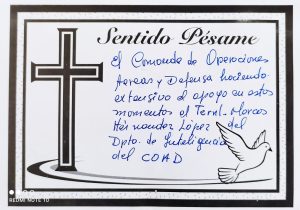 Sentido Pésame
El Comando de Operaciones
Aereas y Defensa haciendo
extensivo el apoyo en estos
momentos el Tcrnl. Marcos
Hernandez López del
Dpto. de Inteligencia
del COAD
REDMI NOTE 10